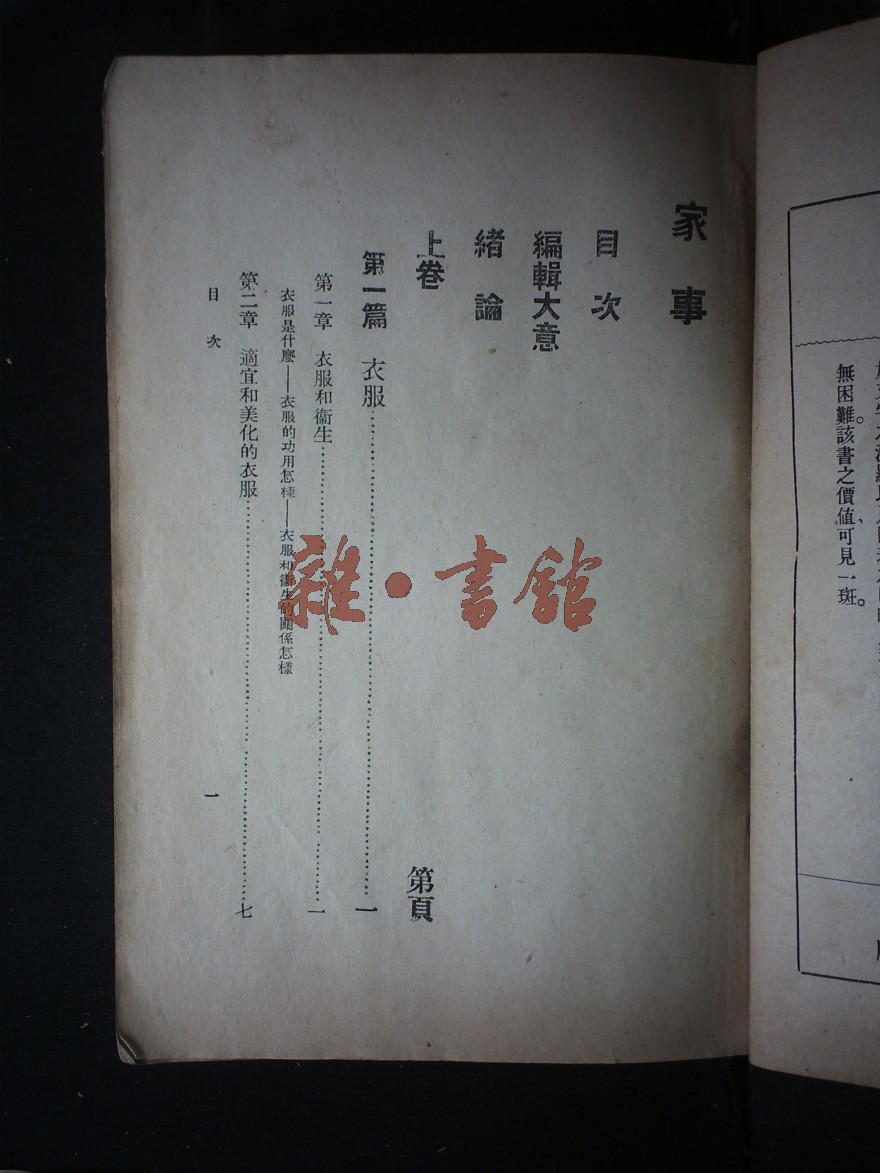 家事
目次
編輯大意
緒論
上卷
第頁
第一篇 衣服……一
第一章 衣服和衞生……一
衣服是什麼——衣服的功用怎樣——衣服和衞生的關係怎樣
第二章 適宜和美化的衣服……七
目次
一
雜·書館
無困難。該書之價值、可見一斑。